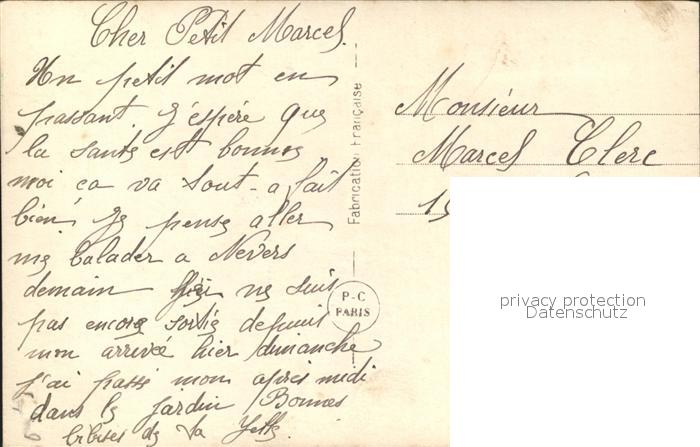 Cher Petit Marcel.
Un petit mot en
passant. J'éspére que
la sante est bonnes
moi ca va tout-a fait
bien. Je pense aller
me balader a Nevers
demain ne suis
pas encore sortie depuis
mon arrivé hier dimanche
j'ai passé mon apres midi
dans le jardin Bonnes
bibises de La
Fabrication Française
P-C
PARIS
Monsieur
Marcel Clerc
15
privacy protection
Datenschutz